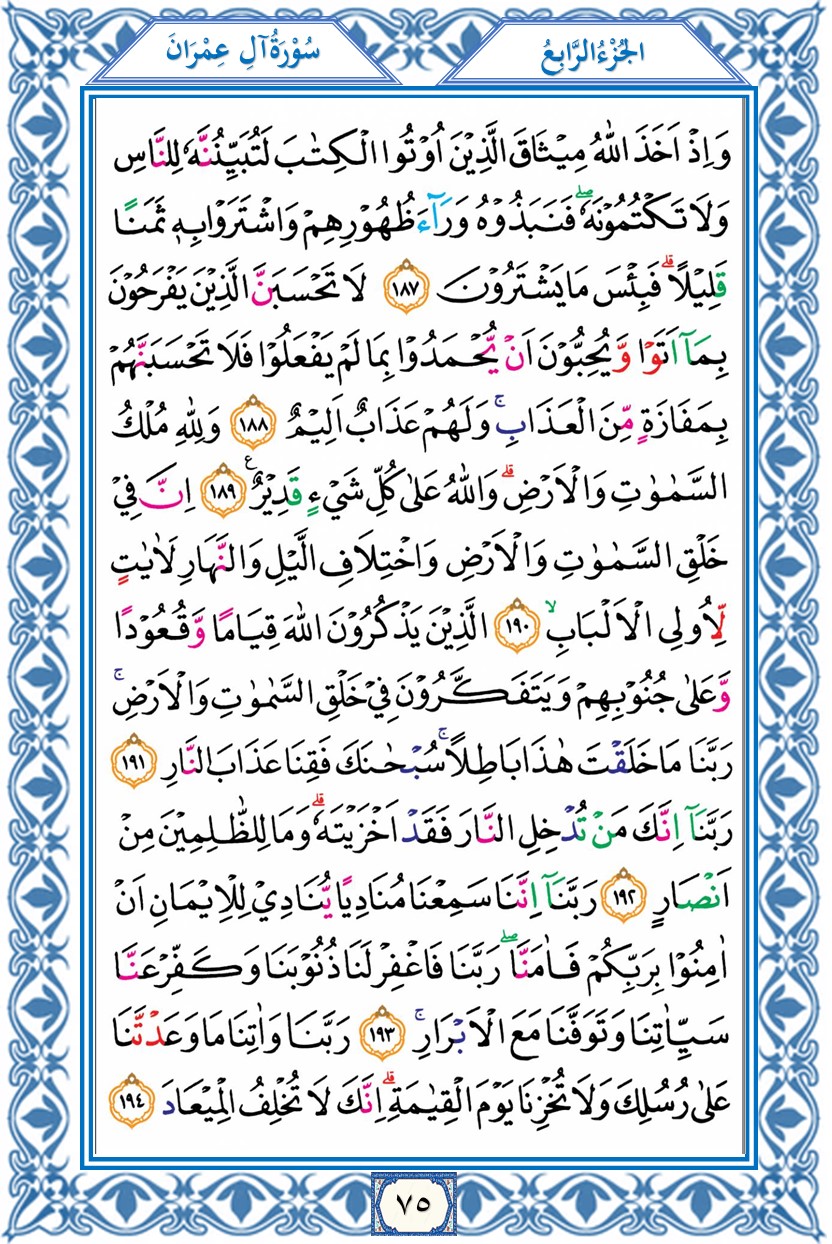 سُوْرَةُ آلِ عِمْرَانَ
الجُزْءُ الرَّابِعُ
وَاِذْ اَخَذَ اللّٰهُ مِيْثَاقَ الَّذِيْنَ اُوْتُوا الْكِتٰبَ لَتُبَيِّنُنَّهٗ لِلنَّاسِ
وَلَا تَكْتُمُوْنَهٗۖ فَنَبَذُوْهُ وَرَآءَ ظُهُوْرِهِمْ وَاشْتَرَوْا بِهٖ ثَمَنًا
قَلِيْلًاۗ فَبِئْسَ مَا يَشْتَرُوْنَ ١٨٧ لَا تَحْسَبَنَّ الَّذِيْنَ يَفْرَحُوْنَ
بِمَآ اَتَوْا وَّيُحِبُّوْنَ اَنْ يُّحْمَدُوْا بِمَا لَمْ يَفْعَلُوْا فَلَا تَحْسَبَنَّهُمْ
بِمَفَازَةٍ مِّنَ الْعَذَابِۚ وَلَهُمْ عَذَابٌ اَلِيْمٌ ١٨٨ وَلِلّٰهِ مُلْكُ
السَّمٰوٰتِ وَالْاَرْضِۗ وَاللّٰهُ عَلٰى كُلِّ شَيْءٍ قَدِيْرٌ ࣖ ١٨٩ اِنَّ فِيْ
خَلْقِ السَّمٰوٰتِ وَالْاَرْضِ وَاخْتِلَافِ الَّيْلِ وَالنَّهَارِ لَاٰيٰتٍ
لِّاُولِى الْاَلْبَابِۙ ١٩٠ الَّذِيْنَ يَذْكُرُوْنَ اللّٰهَ قِيَامًا وَّقُعُوْدًا
وَّعَلٰى جُنُوْبِهِمْ وَيَتَفَكَّرُوْنَ فِيْ خَلْقِ السَّمٰوٰتِ وَالْاَرْضِۚ
رَبَّنَا مَا خَلَقْتَ هٰذَا بَاطِلًاۚ سُبْحٰنَكَ فَقِنَا عَذَابَ النَّارِ ١٩١
رَبَّنَآ اِنَّكَ مَنْ تُدْخِلِ النَّارَ فَقَدْ اَخْزَيْتَهٗۗ وَمَا لِلظّٰلِمِيْنَ مِنْ
اَنْصَارٍ ١٩٢ رَبَّنَآ اِنَّنَا سَمِعْنَا مُنَادِيًا يُّنَادِيْ لِلْاِيْمَانِ اَنْ
اٰمِنُوْا بِرَبِّكُمْ فَاٰمَنَّاۖ رَبَّنَا فَاغْفِرْ لَنَا ذُنُوْبَنَا وَكَفِّرْ عَنَّا
سَيِّاٰتِنَا وَتَوَفَّنَا مَعَ الْاَبْرَارِۚ ١٩٣ رَبَّنَا وَاٰتِنَا مَا وَعَدْتَّنَا
عَلٰى رُسُلِكَ وَلَا تُخْزِنَا يَوْمَ الْقِيٰمَةِۗ اِنَّكَ لَا تُخْلِفُ الْمِيْعَادَ ١٩٤
٧٥